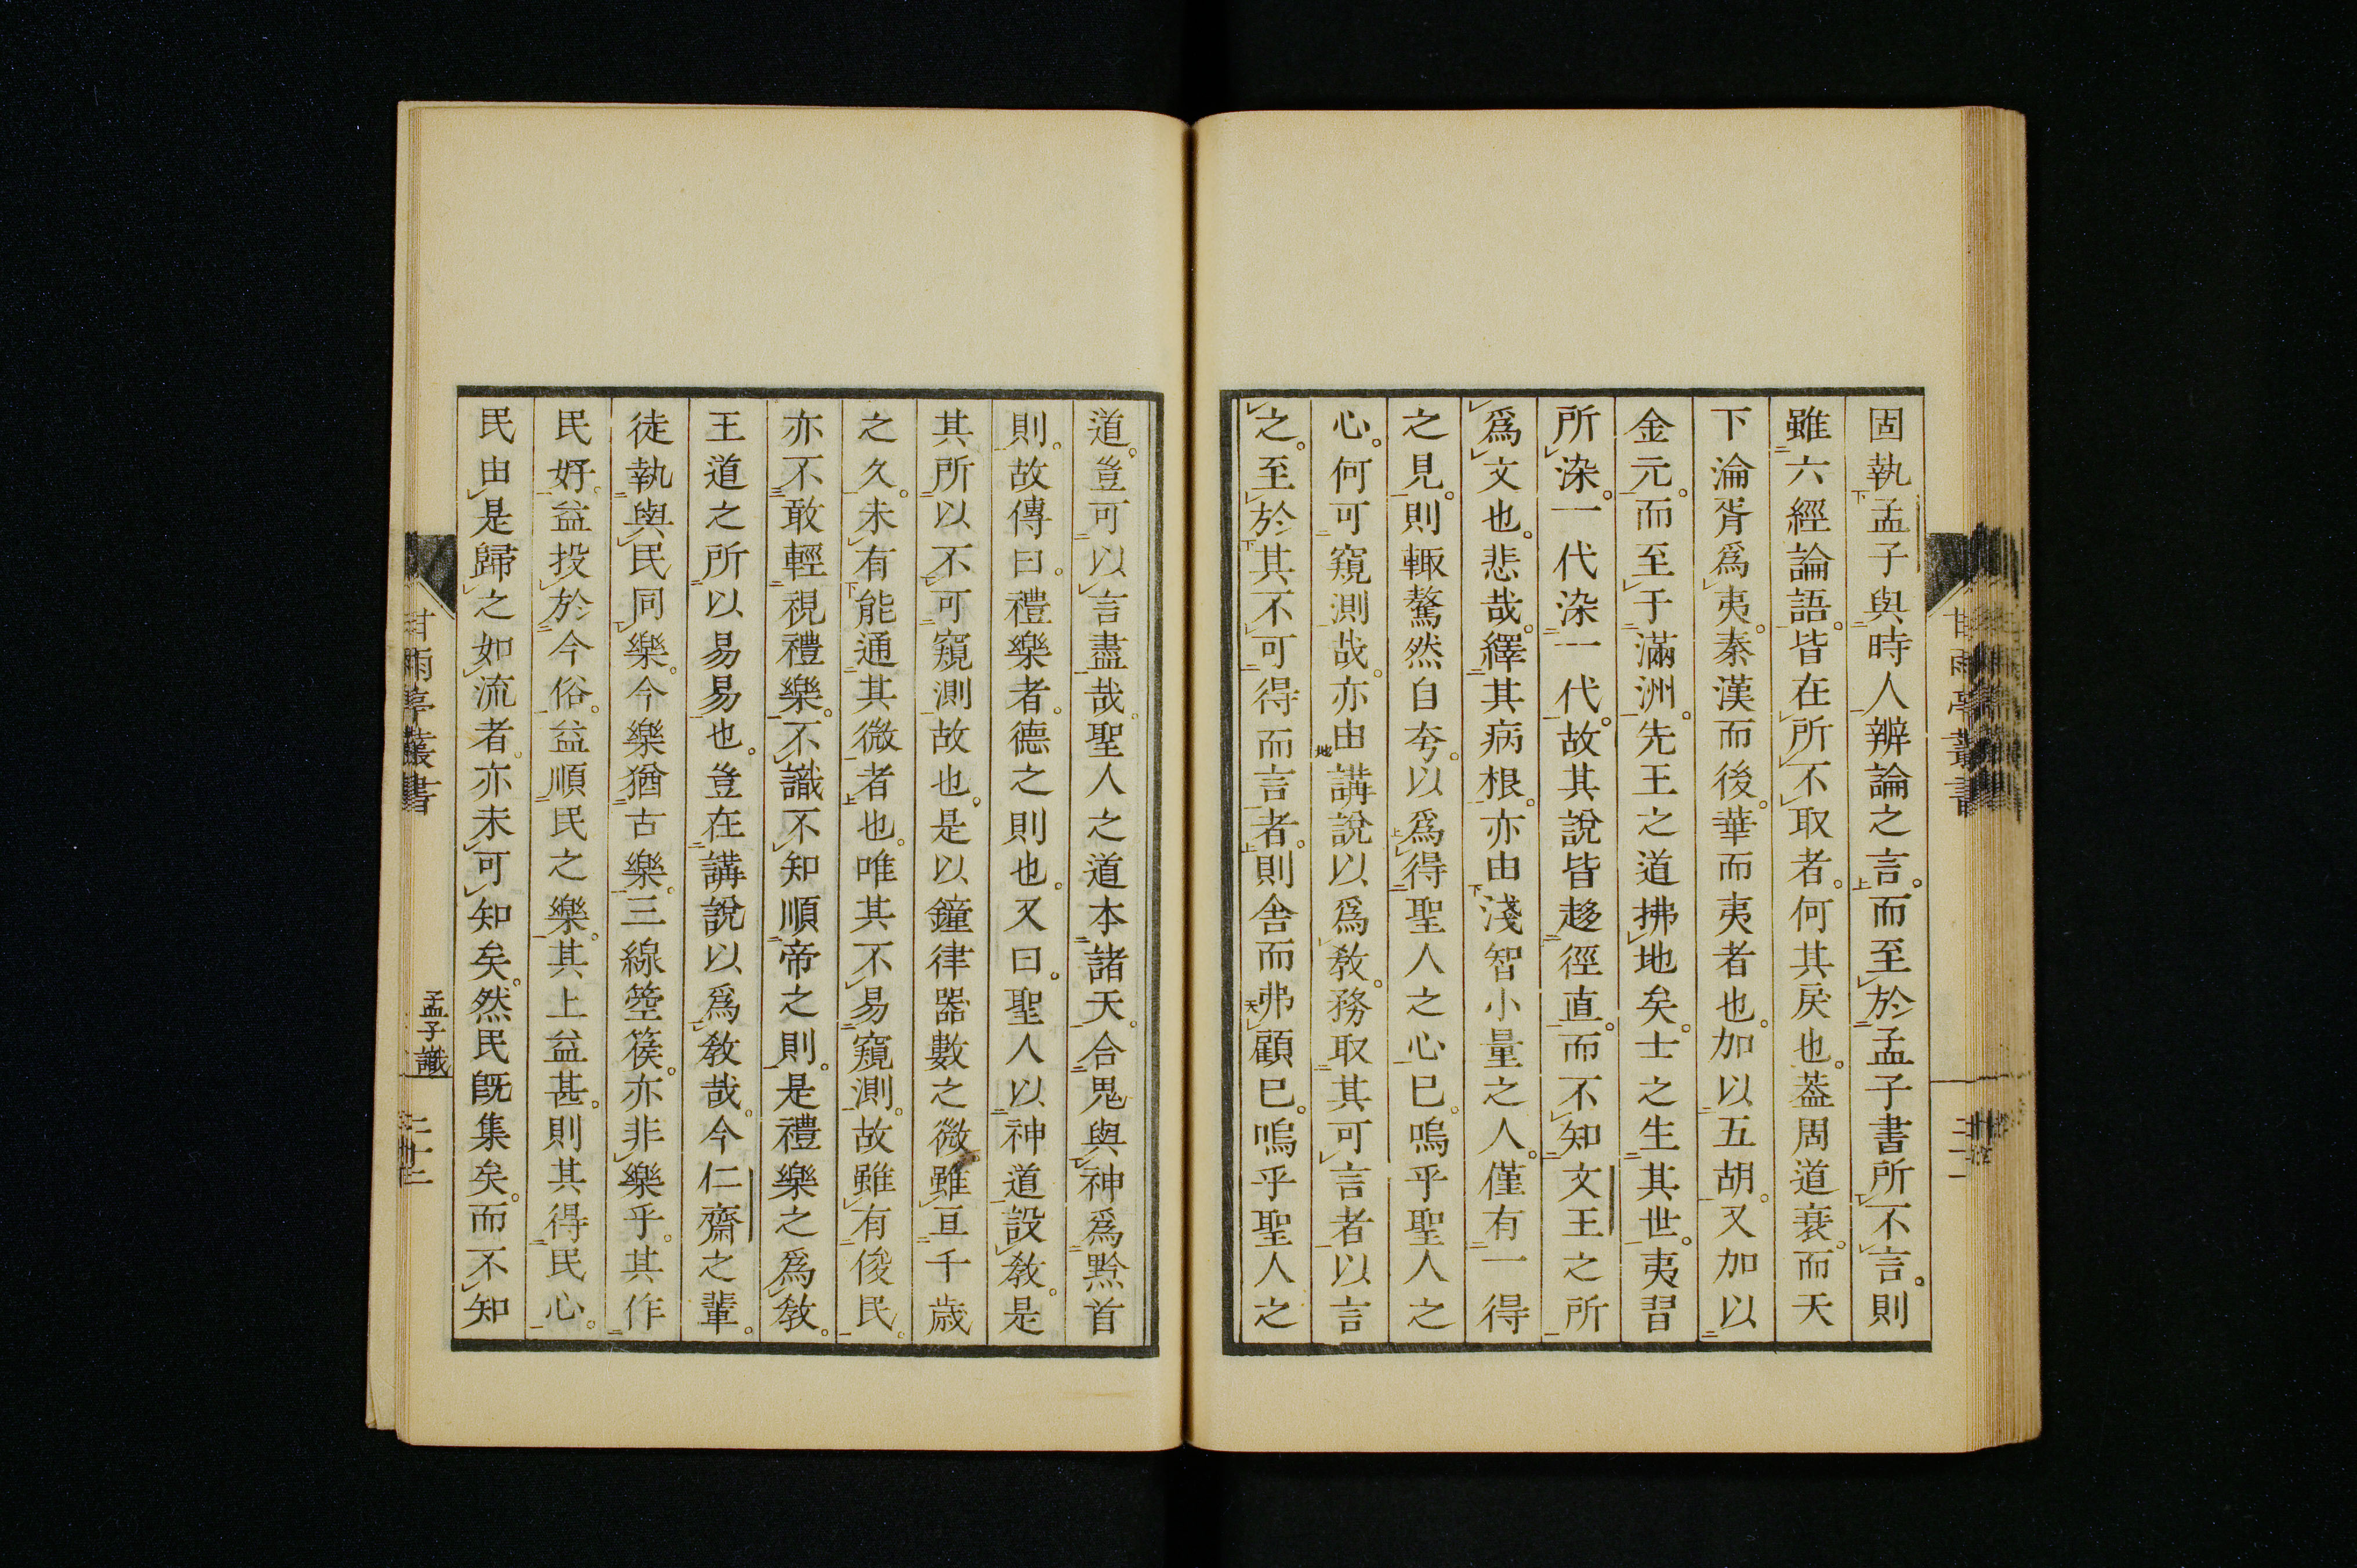 固執孟子與時人辨論之言。而至於孟子書所不言。則
雖六經論語。皆在所不取者。何其戾也。葢周道衰。而天
下淪胥爲夷。秦漢而後。華而夷者也。加以五胡。又加以
金元。而至于滿洲。先王之道拂地矣。士之生其世。夷習
所染。一代染一代。故其說皆趍徑直。而不知文王之所
爲文也。悲哉。繹其病根。亦由淺智小量之人。僅有一得
之見。則輙驁然自夸。以爲得聖人之心已。嗚乎聖人之
心。何可窺測哉。亦由講說以爲教。務取其可言者以言
之。至於其不可得而言者。則舍而弗顧已。嗚乎聖人之
道。豈可以言盡哉。聖人之道本諸天。合鬼與神爲黔首
則。故傳曰。禮樂者。德之則也。又曰。聖人以神道設教。是
其所以不可窺測故也。是以鐘律器數之微。雖亘千歲
之久。未有能通其微者也。唯其不易窺測。故雖有俊民。
亦不敢輕視禮樂。不識不知順帝之則。是禮樂之爲教。
王道之所以易易也。豈在講說以爲教哉。今仁齋之輩。
徒執與民同樂。今樂猶古樂。三線箜篌。亦非樂乎。其作
民好。益投於今俗。益順民之樂。其上益甚。則其得民心。
民由是歸之如流者。亦未可知矣。然民旣集矣。而不知
甘雨亭叢書
孟子識
二十二